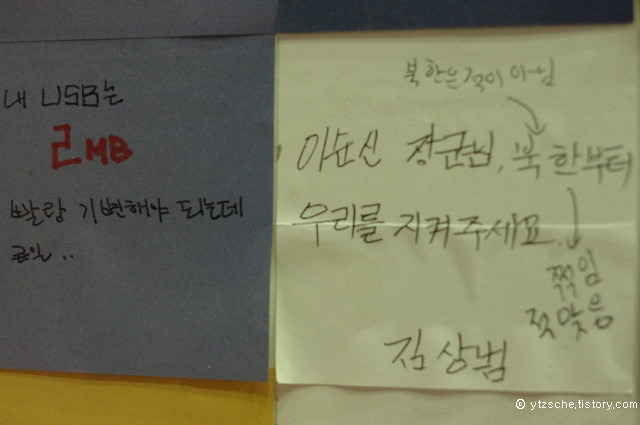 내 USB는
2MB
빨랑 기변해야 되는데
큰일..
북한은 적이 아님
이순신 장군님, 북한부터
우리를 지켜주세요.
찍임
적 맞음
김상범
© ytzsche.tistory.com